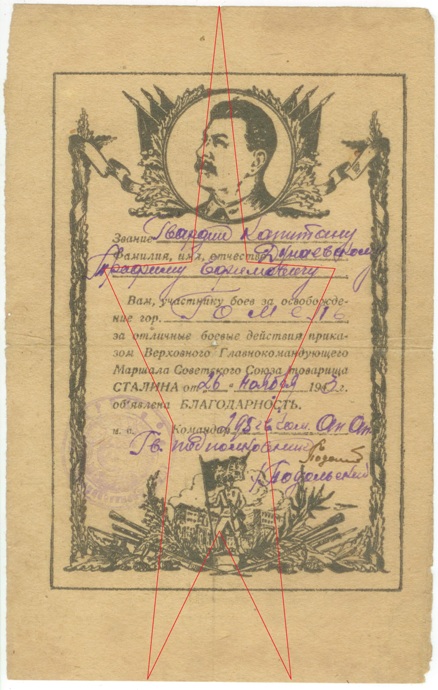 Звание Гвардии Капитану
Фамилия, имя, отчество Дунаевскому
Вам, участнику боев за освобожде-
ние гор. Гомель
за отличные боевые действия прика-
зом Верховного Главнокомандующего
Маршала Советского Союза товарища
СТАЛИНА от „26“ ноября 1943 г.
об'явлена БЛАГОДАРНОСТЬ.
Командир
Гв. подполковник
Подольский